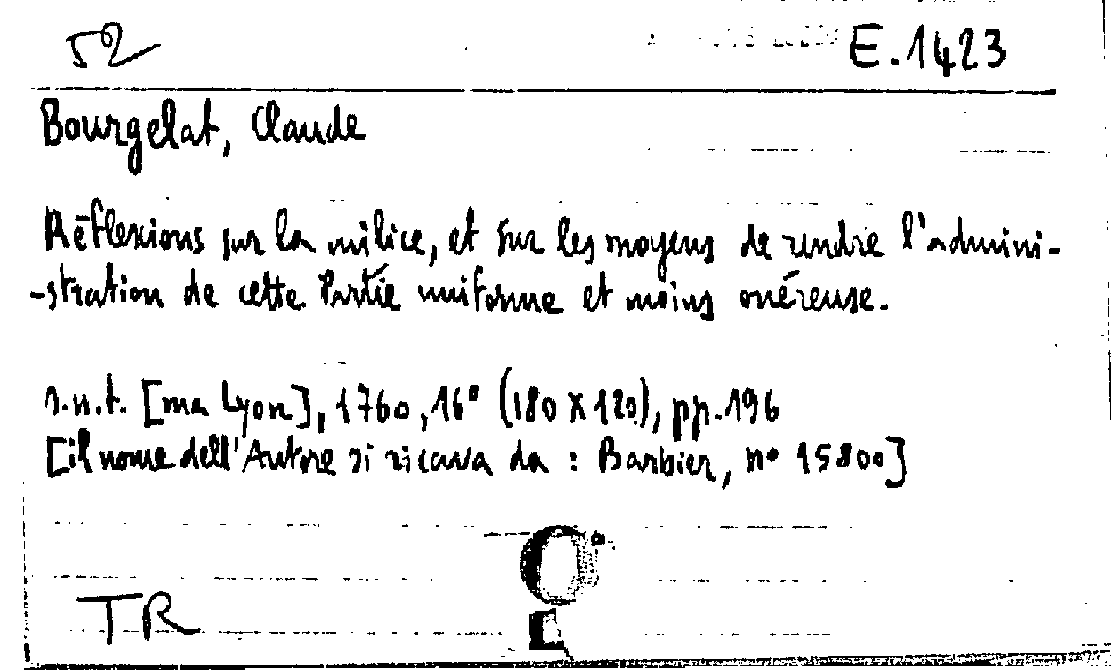 52
E.1423
Bourgelat, Claude
Réflexions sur la milice, et sur les moyens de rendre l'admini-
-stration de cette Partie uniforme et moins onéreuse.
s.n.t. [ma Lyon], 1760, 16° (180 x 120), pp. 196
[il nome dell'Autore si ricava da : Barbier, n° 15800]
TR